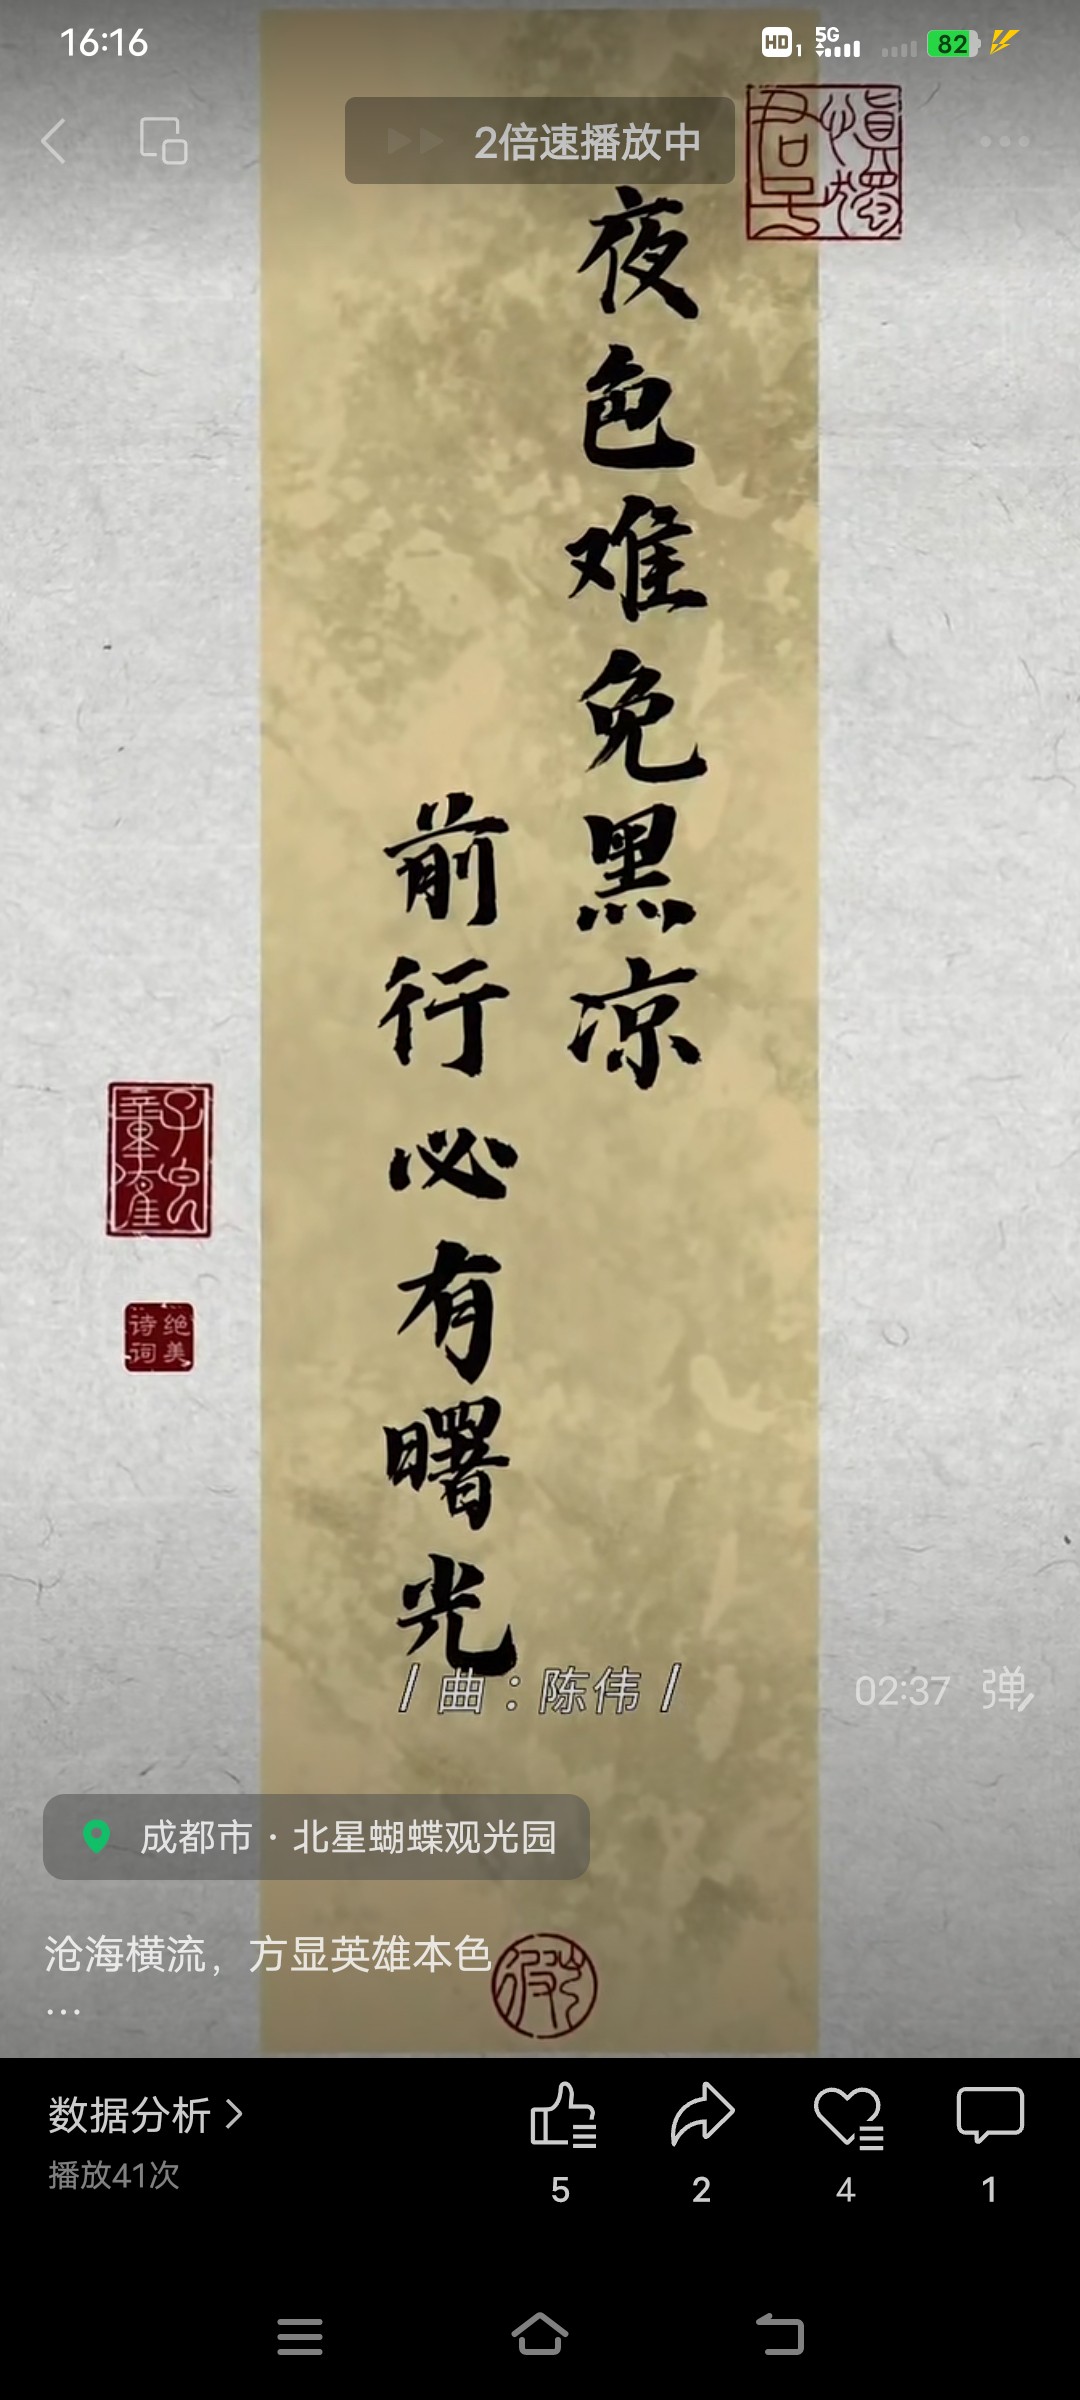 16:16
HD 1 5G 82
2倍速播放中
慎独
君子
夜色难免黑凉
前行必有曙光
绝美
诗词
/ 曲：陈伟 /
02:37 弹
成都市·北星蝴蝶观光园
沧海横流，方显英雄本色
...
数据分析
播放41次
5
2
4
1